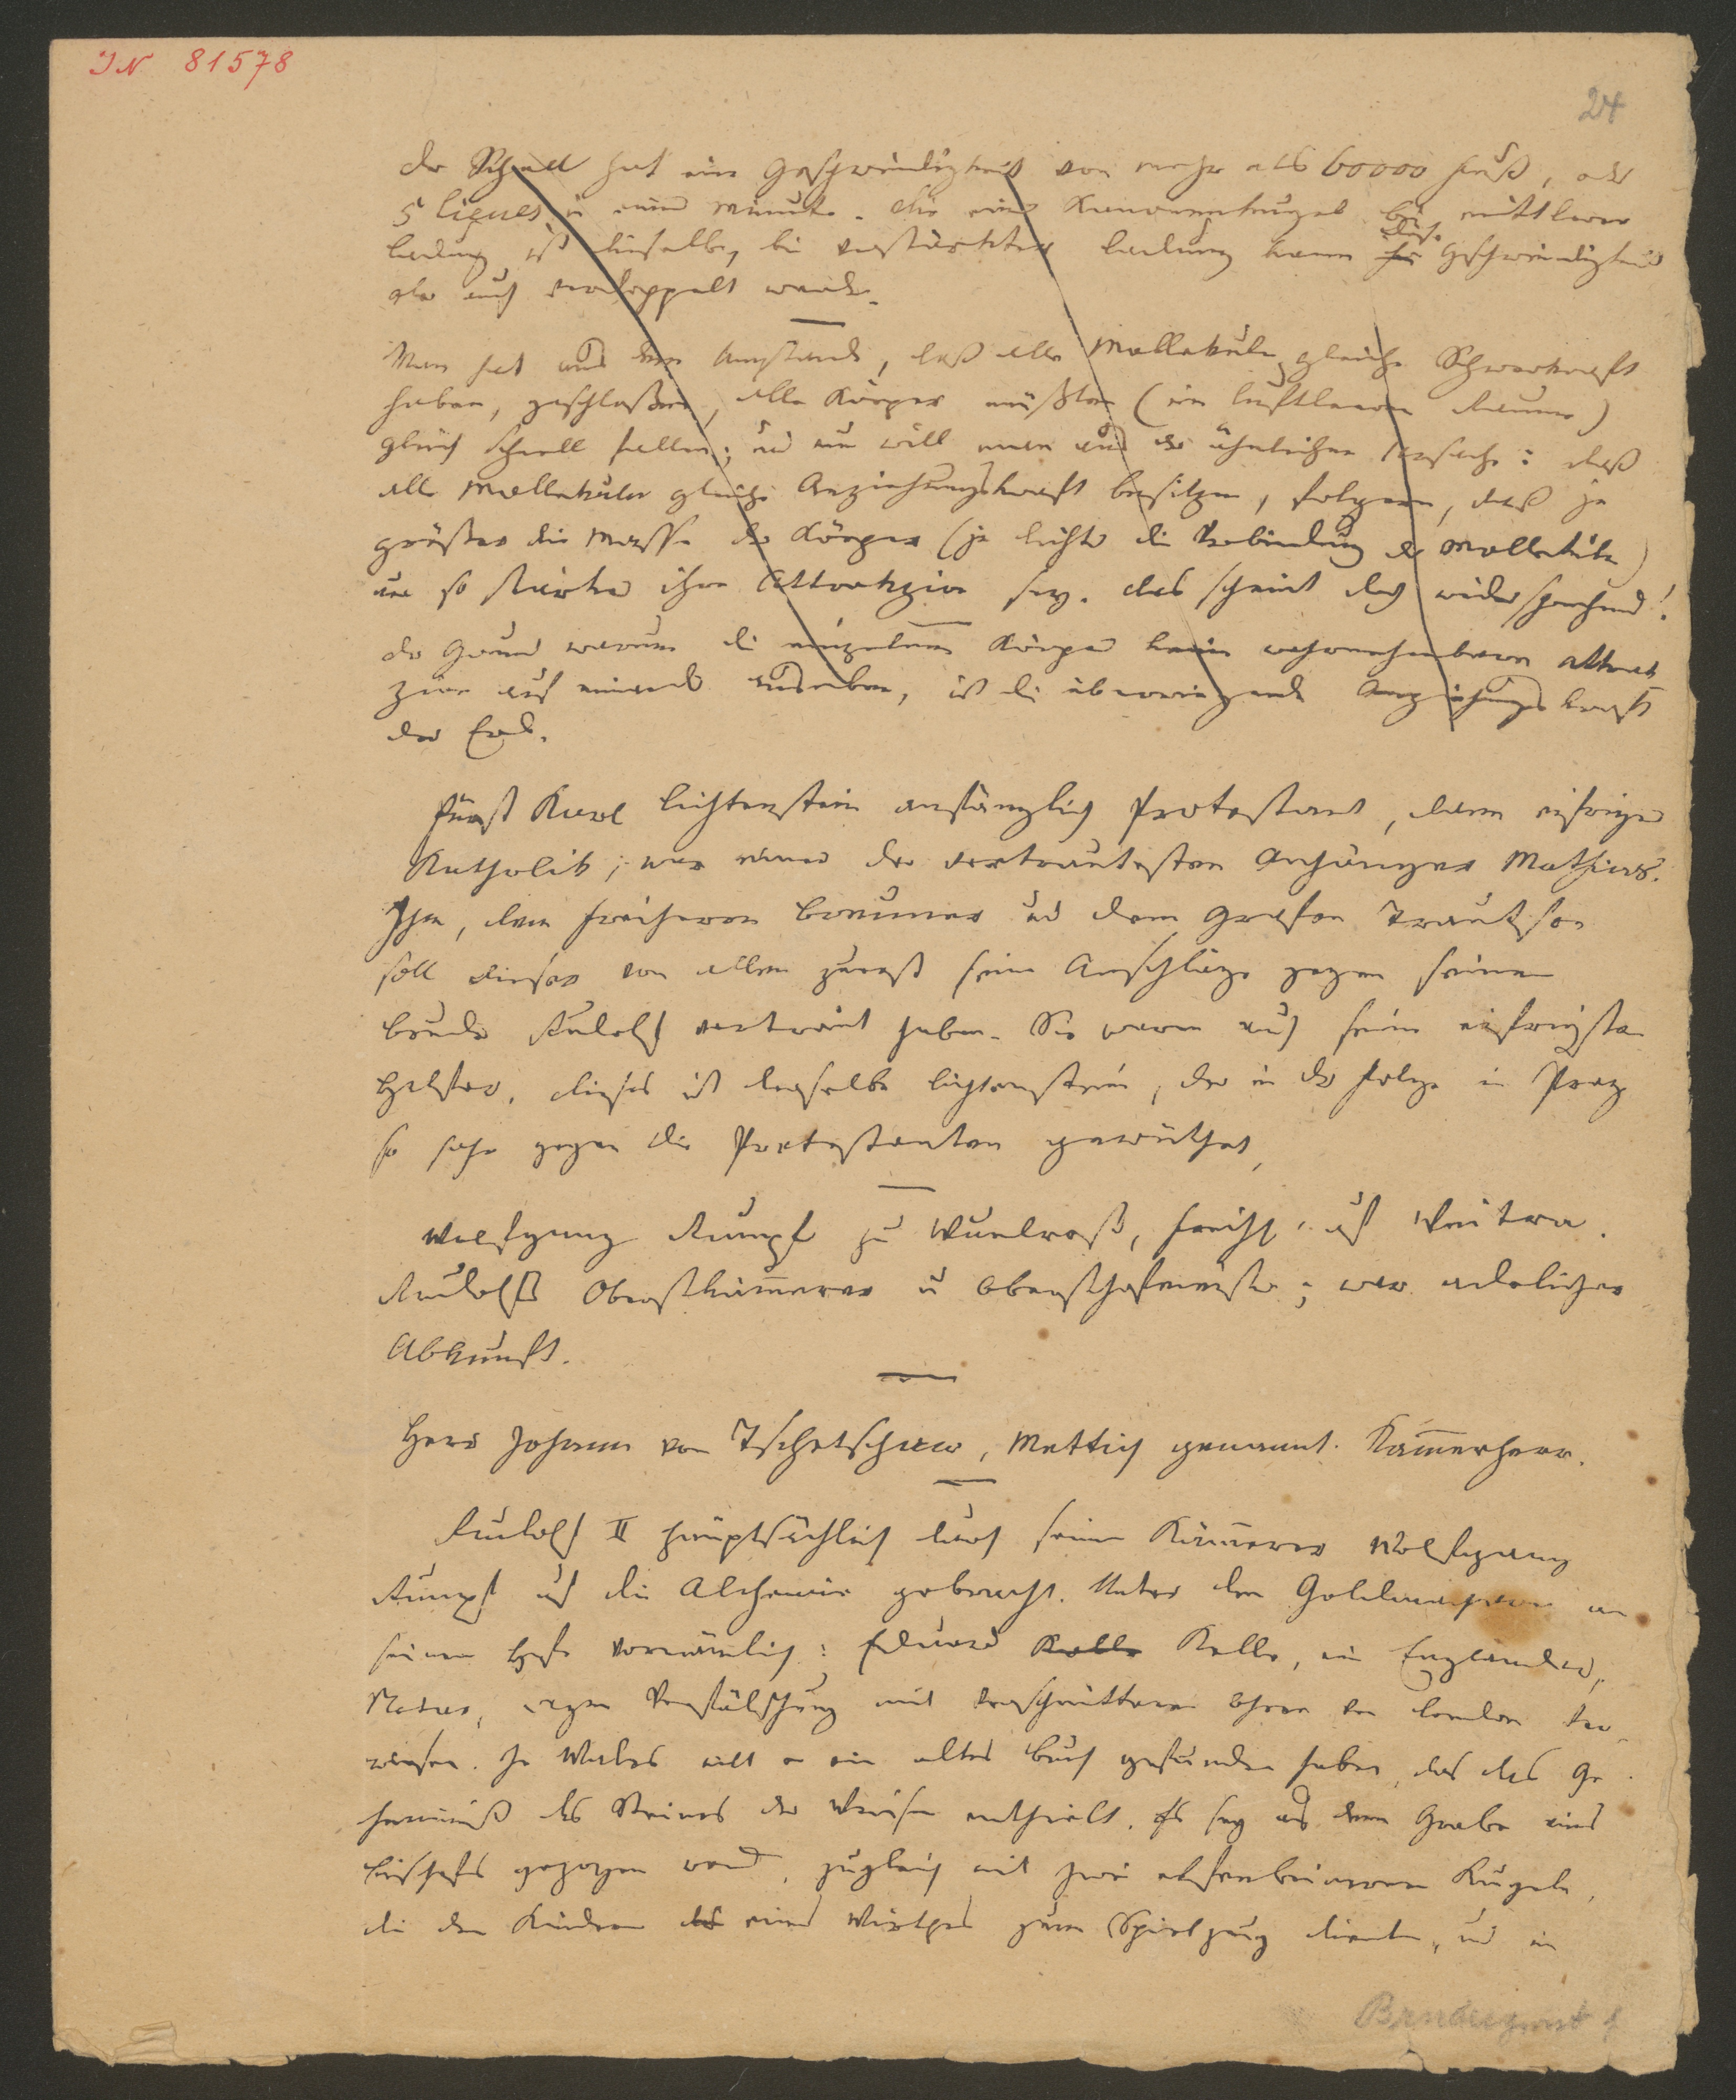 IN 81578
24
der Schall hat eine Geschwindigkeit von mehr als 60000 Fuß, oder
5 lieues in einer Minute. die einer Kanonenkugel bei mittlerer
Ladung ist dieselbe, bei verstärkter Ladung kann ihre diese Geschwindigkeit
aber auch verdoppelt werden.
Man hat aus dem Umstande, daß alle Mollekule gleiche Schwerkraft
haben, geschloßen, alle Körper müßten (im luftleeren Raume)
gleich schnell fallen; und nun will man aus der ähnlichen Ursache: daß
alle Mollekulen gleiche Anziehungskraft besitzen, folgern, daß je
größer die Masse der Körper (je dichter die Verbindung der Mollekule)
um so stärker ihre Attrakzion sey. das scheint doch widersprechend!
der Grund warum die einzelnen Körper keine wahrnehmbare Attrak
zion auf einander ausüben, ist die überwiegende Anziehungskraft
der Erde.
Fürst Karl Lichtenstein anfänglich Protestant, dann eifriger
Katholik; war einer der vertrautesten Anhänger Mathias.
Ihm, dem Freiherrn Breuner und dem Grafen Trautson
soll dieser von allen zuerst seine Anschläge gegen seinen
Bruder Rudolf vertraut haben. Sie waren auch seine eifrigsten
Helfer. dieses ist derselbe Lichtenstein, der in der Folge in Prag
so sehr gegen die Protestanten gewüthet,
Wolfgang Rumpf zu Wuelroß, Freih. auf Weitra.
Rudolfs Oberstkämmerer u Obersthofmeister; war adelicher
Abkunft.
Herr Johann von Tschetschau, Mettich genannt. Kammerherr.
Rudolf II hauptsächlich durch seinen Kämmerer Wolfgang
Rumpf auf die Alchemie gebracht. Unter den Goldmachern an
seinem Hofe vornämlich: Eduard Kelle Kelle, ein Engländer,
Notar, wegen Verfälschung mit verschnittenen Ohren von London ver
wiesen. In Wales will er ein altes Buch gefunden haben, das das Ge
heimniß des Steines der Weisen enthielt. Es sey aus dem Grabe eines
Bischofs gezogen worden, zugleich mit zwei elfenbeinernen Kugeln,
die den Kindern des eines Wirthes zum Spielzeug dienten, und in